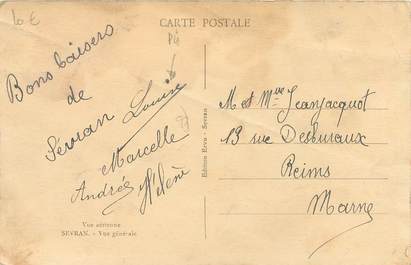 10 €
CARTE POSTALE
Bons baisers
de
Sévran
Louise
Marcelle
Andrée
Hélène
Vue aérienne
SEVRAN. - Vue générale
Edition Ervu - Sevran
M et Mme Jeanjacquot
13 rue Desbureaux
Reims
Marne